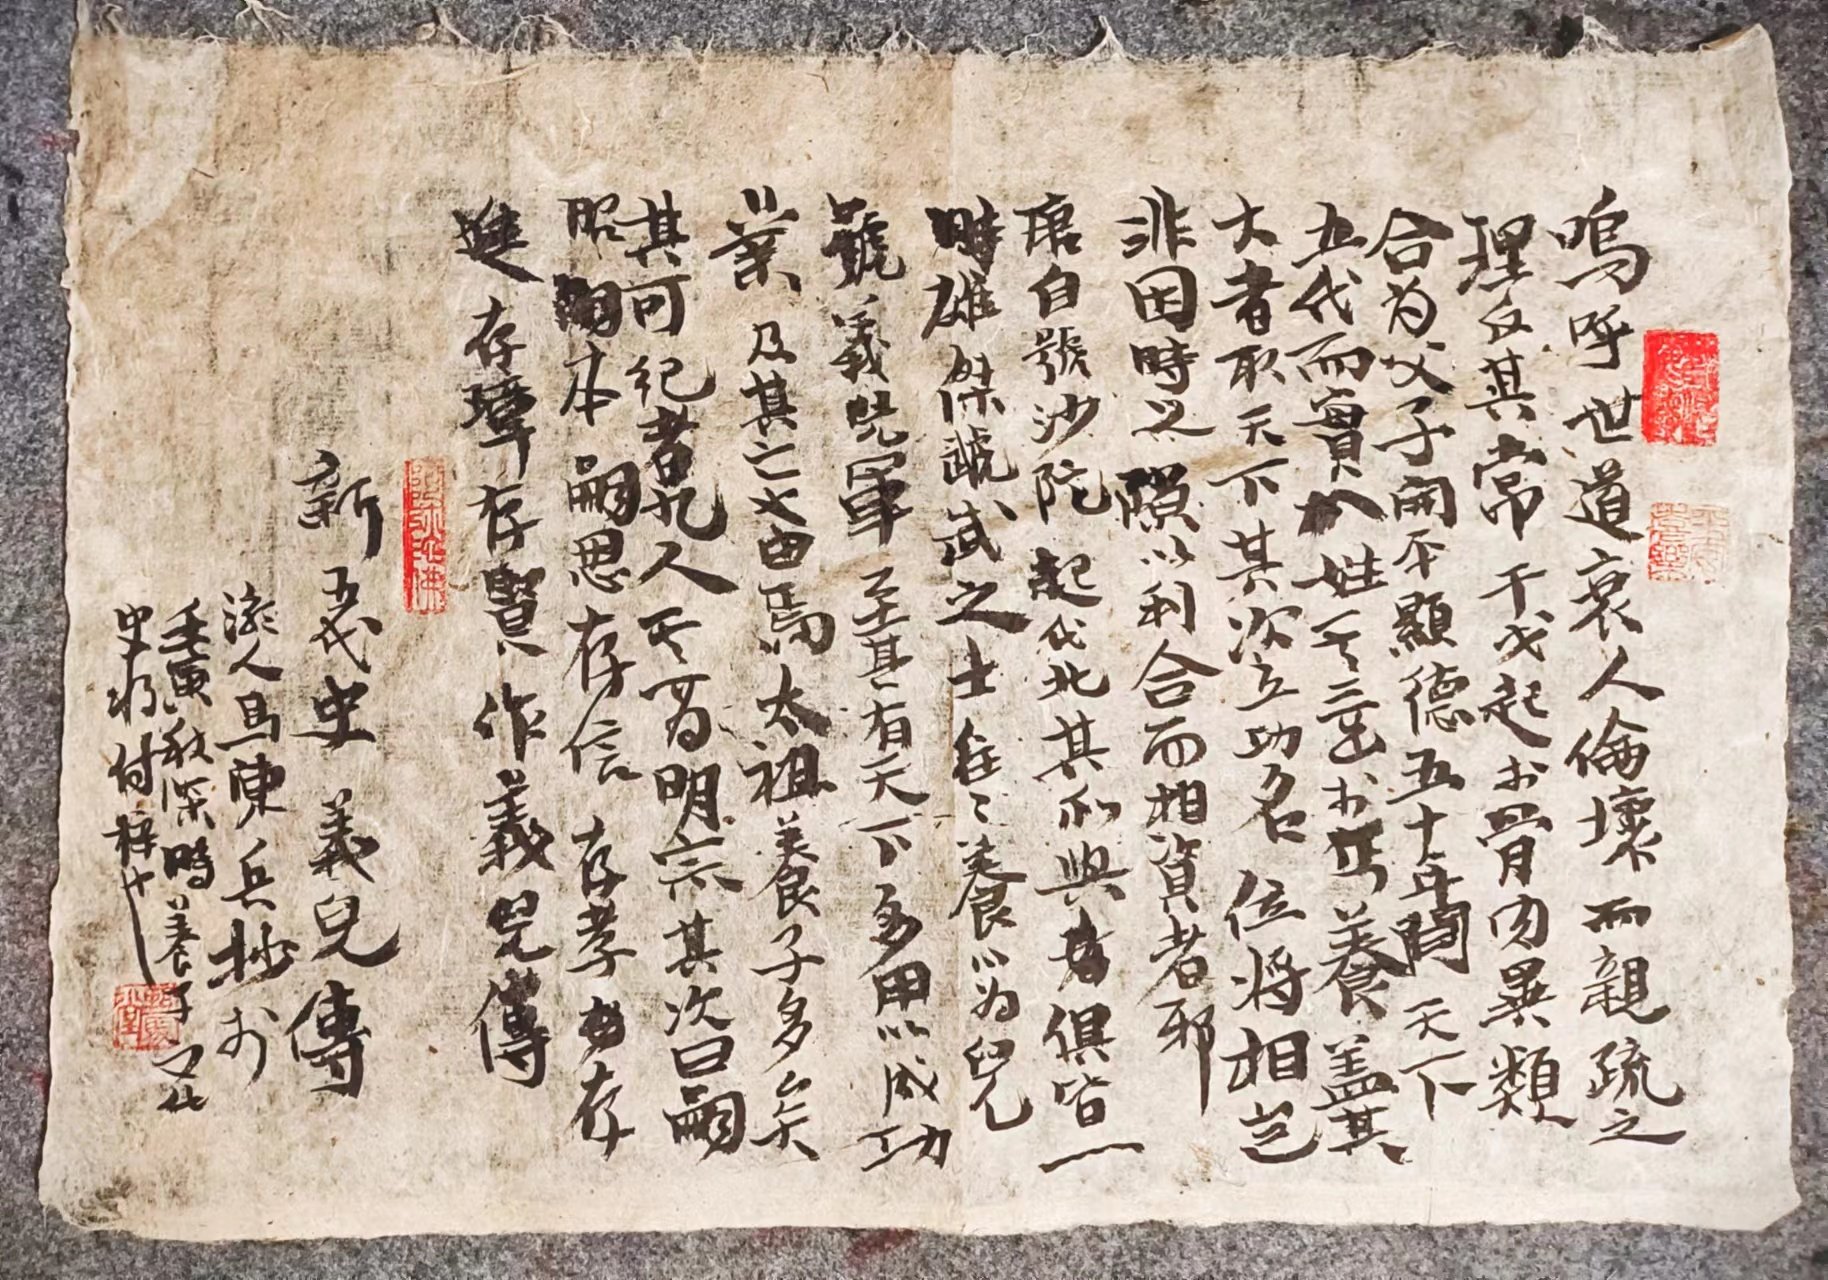 嗚呼世道衰人倫壞而親疏之
理反其常干戈起於骨肉異類
合為父子開平顯德五十年間天下
五代而實八姓其三出於丐養蓋其
大者取天下其次立功名位將相豈
非因時之隙以利合而相資者邪
唐自號沙陀起代北其所與者俱皆一
時雄傑虣武之士往々養以為兒
號義兒軍至其有天下多用以成功
業及其亡也由焉太祖養子多矣
其可紀者九人其一為明宗其次曰嗣
昭嗣本嗣恩存信存孝存
進存璋存賢作義兒傳
新五代史義兒傳
人馬陳兵抄於
壬寅秋深時養子